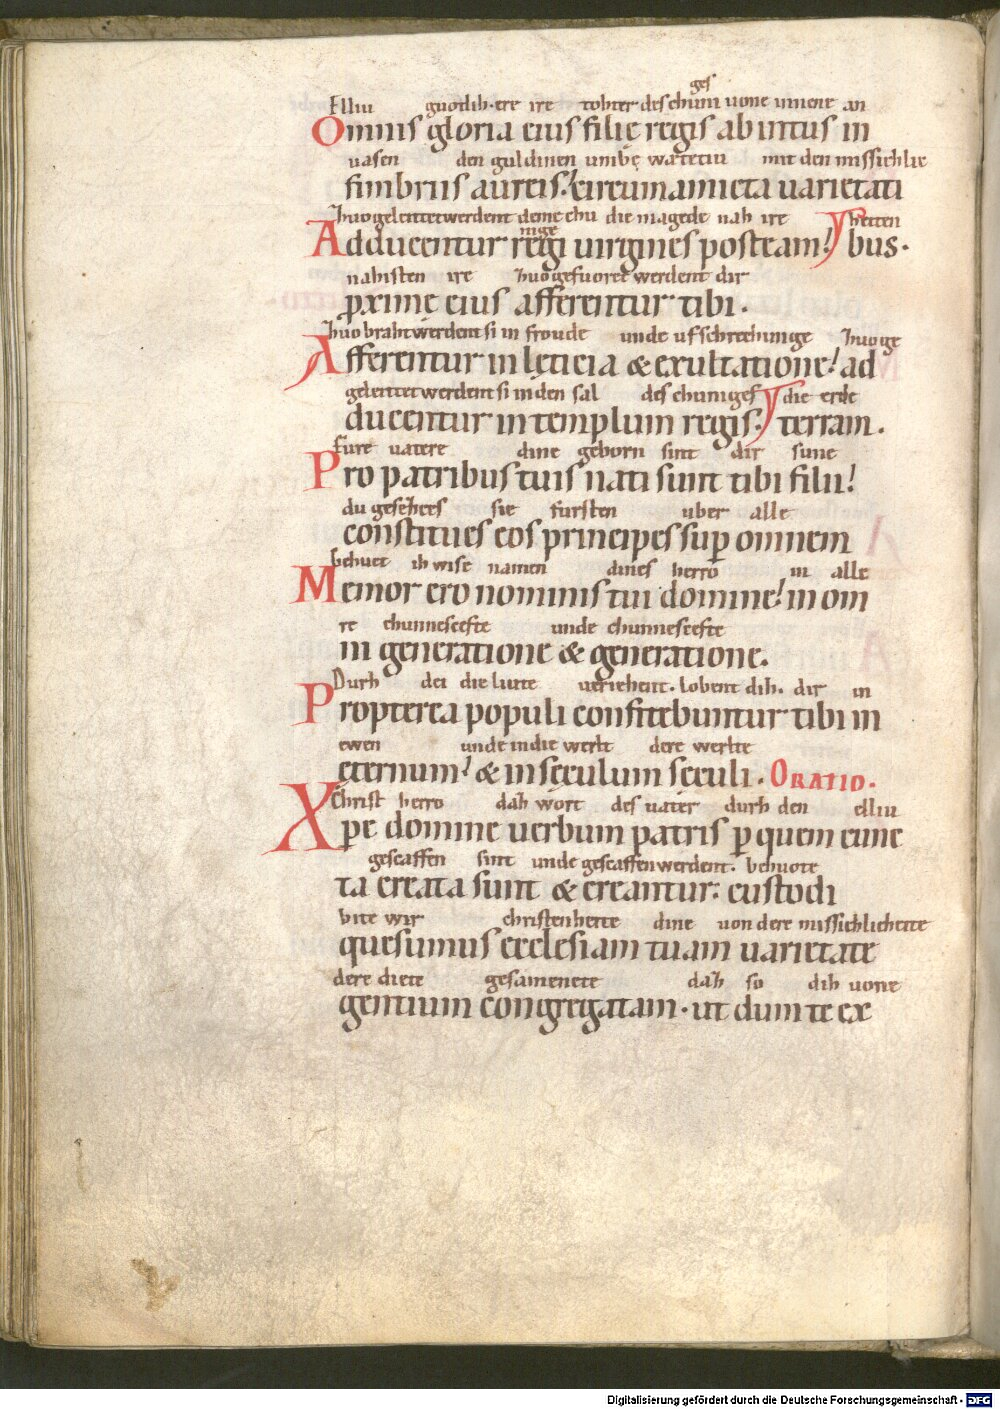 ges
Elliu guotlih·ere ire tohter des chuni uone innene an
Omnis gloria eius filię regis ab intus in
uasen den guldinen umbę wąrtetiu mit den missichlic
fimbriis aureis! circumamicta uarietati
zuo geleittet werdent deme chu die magede nah ire heiten
Adducentur regi uirgines post eam! bus·
nige
nahisten ire zuo gefuoret werdent dir
ꝓxime eius afferentur tibi·
zuo braht werdent si in froude unde ufschrechunge zuo ge
Afferentur in lęticia & exultatione! ad
geleittet werdent si in den sal des chuniges die erde
ducentur in templum regis· terram·
Fure uatere dine geborn sint dir sune
Pro patribus tuis nati sunt tibi filii!
du gesezzes sie fursten uber alle
constitues eos principes suꝑ omnem
gehuct ih wise namen dines herro in alle
Memor ero nominis tui domine! in om
re chunnescefte unde chunnescefte
in generatione & generatione·
Durh dei die liute ueriehent· lobent dih· dir in
Propterea populi confitebuntur tibi in
ewen unde in die werlt dere werlte
ęternum! & in sęculum sęculi· ORATIO·
Christ herro daz wort des uater durh den elliu
Xpe domine uerbum patris ꝑ quem cunc
gescaffen sint unde gescaffen werdent· behuote
ta creata sunt & creantur: custodi
bite wir christenheite dine von dere missichlicheite
quesumus ecclesiam tuam uarietate
dere diete gesamenete daz so dih uone
gentium congregatam· ut dum te ex
Digitalisierung gefördert durch die Deutsche Forschungsgemeinschaft - DFG